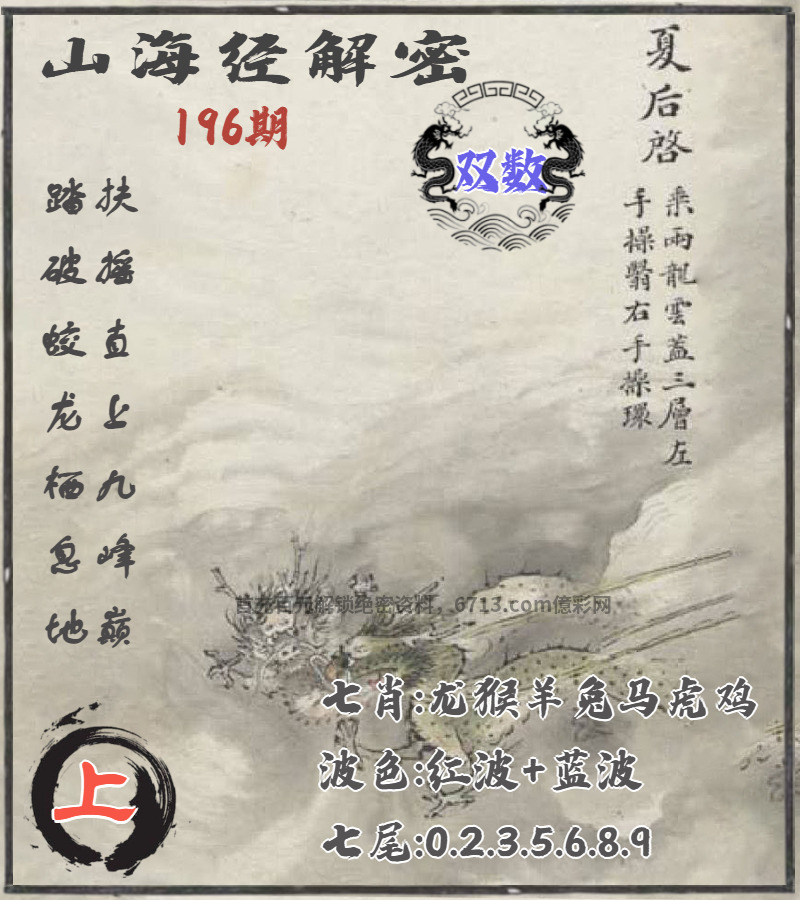 山海经解密
196期
双数
夏后启
乘兩龍雲蓋三層左
手操翳右手操環
扶摇直上九峰巅
踏破蛟龙栖息地
首充百元解锁绝密资料，6713.com億彩网
七肖:龙猴羊兔马虎鸡
波色:红波+蓝波
七尾:0.2.3.5.6.8.9
上